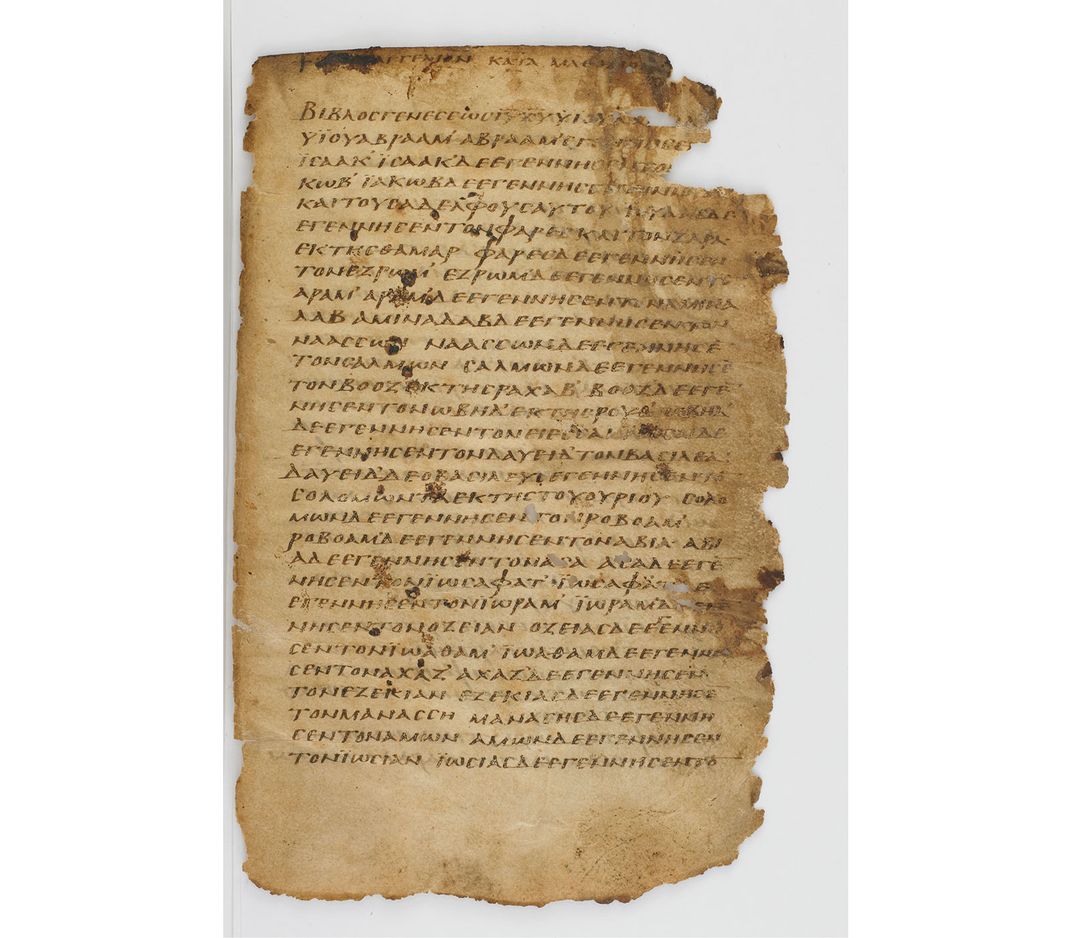 ΕΥΑΓΓΕΛΙΟΝ ΚΑΤΑ ΜΑΘ
ΒΙΒΛΟΣ ΓΕΝΕΣΕΩΣ ΙΥ ΧΥ ΥΙΟΥ
ΥΪΟΥ ΑΒΡΑΑΜ' ΑΒΡΑΑΜ'
ΪΣΑΑΚ' ΪΣΑΑΚ' ΔΕ ΕΓΕΝΝΗΣΕΝ ΤΟΝ
ΚΩΒ' ΪΑΚΩΒ ΔΕ ΕΓΕΝΝΗΣΕΝ
ΚΑΙ ΤΟΥΣ ΑΔΕΛΦΟΥΣ ΑΥΤΟΥ
ΕΓΕΝΝΗΣΕΝ ΤΟΝ ΦΑΡΕΣ ΚΑΙ ΤΟΝ ΖΑΡΑ
ΕΚ ΤΗΣ ΘΑΜΑΡ ΦΑΡΕΣ ΔΕ ΕΓΕΝΝΗΣΕΝ
ΤΟΝ ΕΖΡΩΜ' ΕΖΡΩΜ' ΔΕ ΕΓΕΝΝΗΣΕΝ ΤΟ
ΑΡΑΜ' ΑΡΑΜ' ΔΕ ΕΓΕΝΝΗΣΕΝ ΤΟΝ ΑΜΙΝΑ
ΔΑΒ ΑΜΙΝΑΔΑΒ ΔΕ ΕΓΕΝΝΗΣΕΝ ΤΟΝ
ΝΑΑΣΣΩΝ ΝΑΑΣΣΩΝ ΔΕ ΕΓΕΝΝΗΣΕ̄
ΤΟΝ ΣΑΛΜΩΝ ΣΑΛΜΩΝ ΔΕ ΕΓΕΝΝΗΣΕ̄
ΤΟΝ ΒΟΟΖ ΕΚ ΤΗΣ ΡΑΧΑΒ' ΒΟΟΖ ΔΕ ΕΓΕ
ΝΗΣΕΝ ΤΟΝ ΩΒΗΔ' ΕΚ ΤΗΣ ΡΟΥΘ' ΩΒΗΔ'
ΔΕ ΕΓΕΝΝΗΣΕΝ ΤΟΝ ΕΙΕΣΣΑΙ ΔΕ
ΕΓΕΝΝΗΣΕΝ ΤΟΝ ΔΑΥΕΙΔ' ΤΟΝ ΒΑΣΙΛΕΑ:
ΔΑΥΕΙΔ' ΔΕ Ο ΒΑΣΙΛΕΥΣ ΕΓΕΝΝΗΣΕΝ ΤΟ
ΣΟΛΟΜΩΝΤΑ ΕΚ ΤΗΣ ΤΟΥ ΟΥΡΙΟΥ ΣΟΛΟ
ΜΩΝ ΔΕ ΕΓΕΝΝΗΣΕΝ ΤΟΝ ΡΟΒΟΑΜ'
ΡΟΒΟΑΜ' ΔΕ ΕΓΕΝΝΗΣΕΝ ΤΟΝ ΑΒΙΑ· ΑΒΙ
Α ΔΕ ΕΓΕΝΝΗΣΕΝ ΤΟΝ ΑΣΑ ΑΣΑ ΔΕ ΕΓΕ
ΝΗΣΕΝ ΤΟΝ ΪΩΣΑΦΑΤ' ΪΩΣΑΦΑΤ' ΔΕ
ΕΓΕΝΝΗΣΕΝ ΤΟΝ ΪΩΡΑΜ' ΪΩΡΑΜ ΔΕ ΕΓΕΝ
ΝΗΣΕΝ ΤΟΝ ΟΖΕΙΑΝ ΟΖΕΙΑΣ ΔΕ ΕΓΕΝΝΗ
ΣΕΝ ΤΟΝ ΪΩΑΘΑΜ' ΪΩΑΘΑΜ ΔΕ ΕΓΕΝΝΗ
ΣΕΝ ΤΟΝ ΑΧΑΖ' ΑΧΑΖ' ΔΕ ΕΓΕΝΝΗΣΕΝ
ΤΟΝ ΕΖΕΚΙΑΝ ΕΖΕΚΙΑΣ ΔΕ ΕΓΕΝΝΗΣΕ
ΤΟΝ ΜΑΝΑΣΣΗ ΜΑΝΑΣΗΣ ΔΕ ΕΓΕΝΝΗ
ΣΕΝ ΤΟΝ ΑΜΩΝ ΑΜΩΝ ΔΕ ΕΓΕΝΝΗΣΕΝ
ΤΟΝ ΪΩΣΙΑΝ ΪΩΣΙΑΣ ΔΕ ΕΓΕΝΝΗΣΕΝ ΤΟ